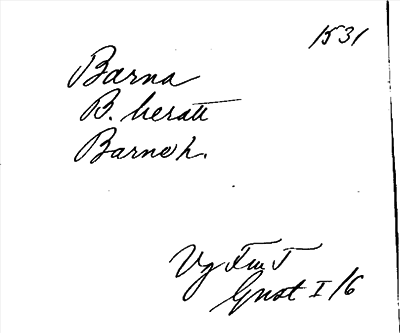 1531
Barna
B. heratt
Barneh.
Vg Fru T
Gnst I/6